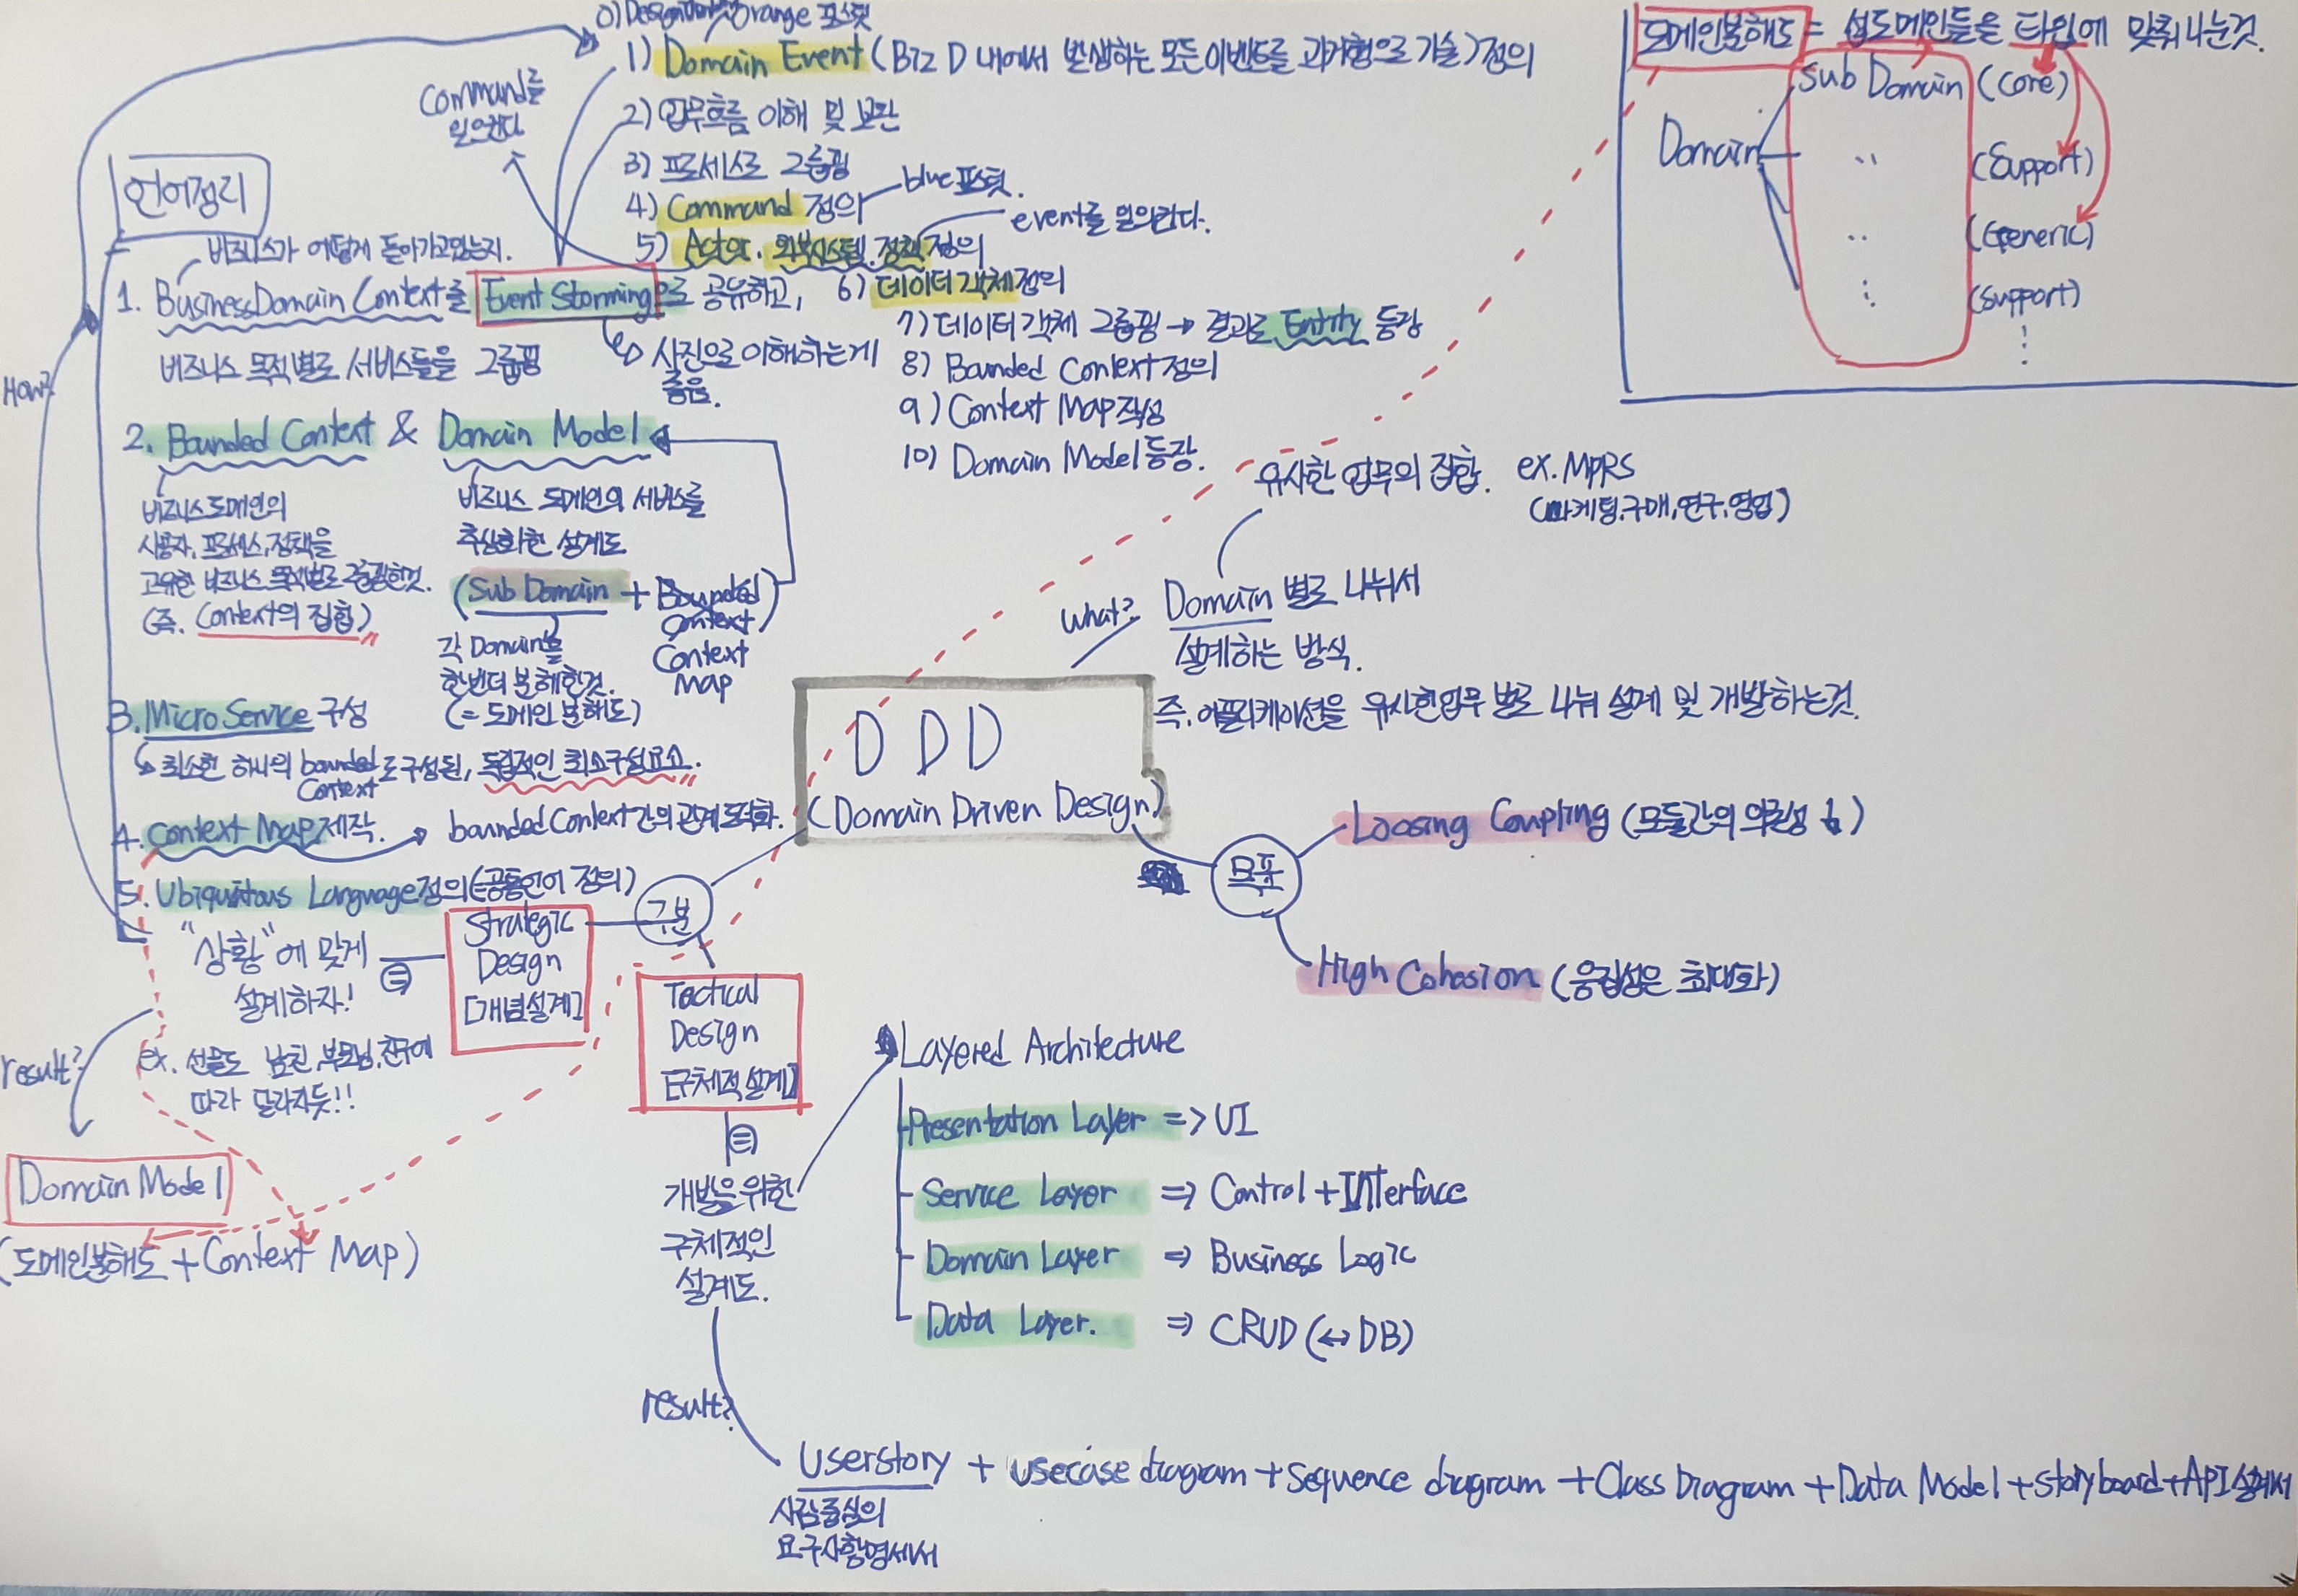 orange 포스트
1) Domain Event (Biz D 내에서 발생하는 모든 이벤트를 과거형으로 기술) 정의
2) 업무흐름 이해 및 보완
3) 프로세스로 그룹핑
4) Command 정의
blue 포스트.
5) Actor. 외부시스템. 정책 정의
event를 일으킨다.
Command를
일으킨다
6) 데이터 객체 정의
7) 데이터 객체 그룹핑 → 결과로 Entity 등장
8) Bounded Context 정의
9) Context Map 작성
10) Domain Model 등장.
도메인분해도 = 섭도메인들을 타입에 맞춰 나눈것.
Sub Domain (Core)
Domain
〃 (Support)
〃 (Generic)
(Support)
언어정리
비즈니스가 어떻게 돌아가고있는지.
1. Business Domain Context를 Event Storming으로 공유하고,
비즈니스 목적별로 서비스들을 그룹핑
사진으로 이해하는게
좋음.
How?
2. Bounded Context & Domain Model
비즈니스도메인의
사용자, 프로세스, 정책을
고유한 비즈니스 목적별로 그룹핑한것.
(즉. Context의 집합)
비즈니스 도메인의 서비스를
추상화한 설계도
(Sub Domain + Bounded Context
Context
Map)
각 Domain을
한번더 분해한것.
(= 도메인 분해도)
3. Micro Service 구성
최소한 하나의 bounded Context로 구성된, 독립적인 최소구성요소.
4. Context Map 제작. → bounded Context간의 관계 도식화.
5. Ubiquitous Language 정의 (=공통언어 정의)
"상황"에 맞게
설계하자!
ex. 선물도 남친, 부모님, 친구에
따라 달라지듯!!
result?
Domain Model
(도메인분해도 + Context Map)
유사한 업무의 집합. ex. MPRS
(마케팅, 구매, 연구, 영업)
What?
Domain 별로 나눠서
설계하는 방식.
즉. 어플리케이션을 유사한업무 별로 나눠 설계 및 개발하는것.
DDD
(Domain Driven Design)
목표
Loosing Coupling (모듈간의 의존성 ↓)
High Cohesion (응집성은 최대화)
구분
Strategic
Design
[개념설계]
Tactical
Design
[구체적 설계]
개발을 위한
구체적인
설계도.
Layered Architecture
Presentation Layer => UI
Service Layer => Control + Interface
Domain Layer => Business Logic
Data Layer. => CRUD (↔ DB)
result?
Userstory + usecase diagram + Sequence diagram + Class Diagram + Data Model + storyboard + API 설계서
사람중심의
요구사항명세서